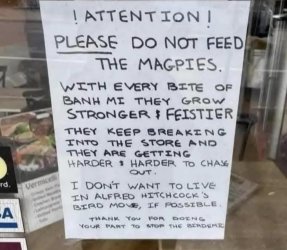 ! ATTENTION !
PLEASE DO NOT FEED
THE MAGPIES.
WITH EVERY BITE OF
BANH MI THEY GROW
STRONGER & FEISTIER
THEY KEEP BREAKING
INTO THE STORE AND
THEY ARE GETTING
HARDER & HARDER TO CHASE
OUT.
I DON'T WANT TO LIVE
IN ALFRED HITCHCOCK'S
BIRD MOVIE, IF POSSIBLE.
THANK YOU FOR DOING
YOUR PART TO STOP THE BIRDEMIC
Vermicelli
rd.
SA